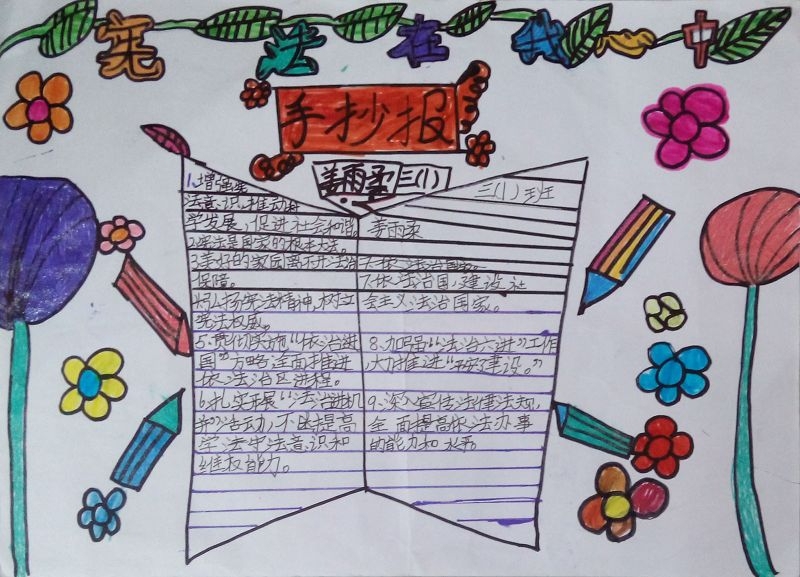 宪法在我心中
手抄报
姜雨柔三(1)
1.增强
法意识,推动科
学发展,促进社会和谐
2.宪法是国家的根本大法。
3.美好的家园离不开法治
保障。
4.弘扬宪法精神,树立
宪法权威。
5.贯彻实施“依治进
国”方略全面推进
依法治区进程。
6.扎实开展“法治进机
活动,不断提高
学法守法意识和
维权能力。
三(1)班
姜雨柔
7.依法治国
7.依法治国,建设社
会主义法治国家。
8.加强“法治六进”工作
大力推进“平安建设。”
9.深入宣传法律法规,
全面提高依法办事
的能力和水平。